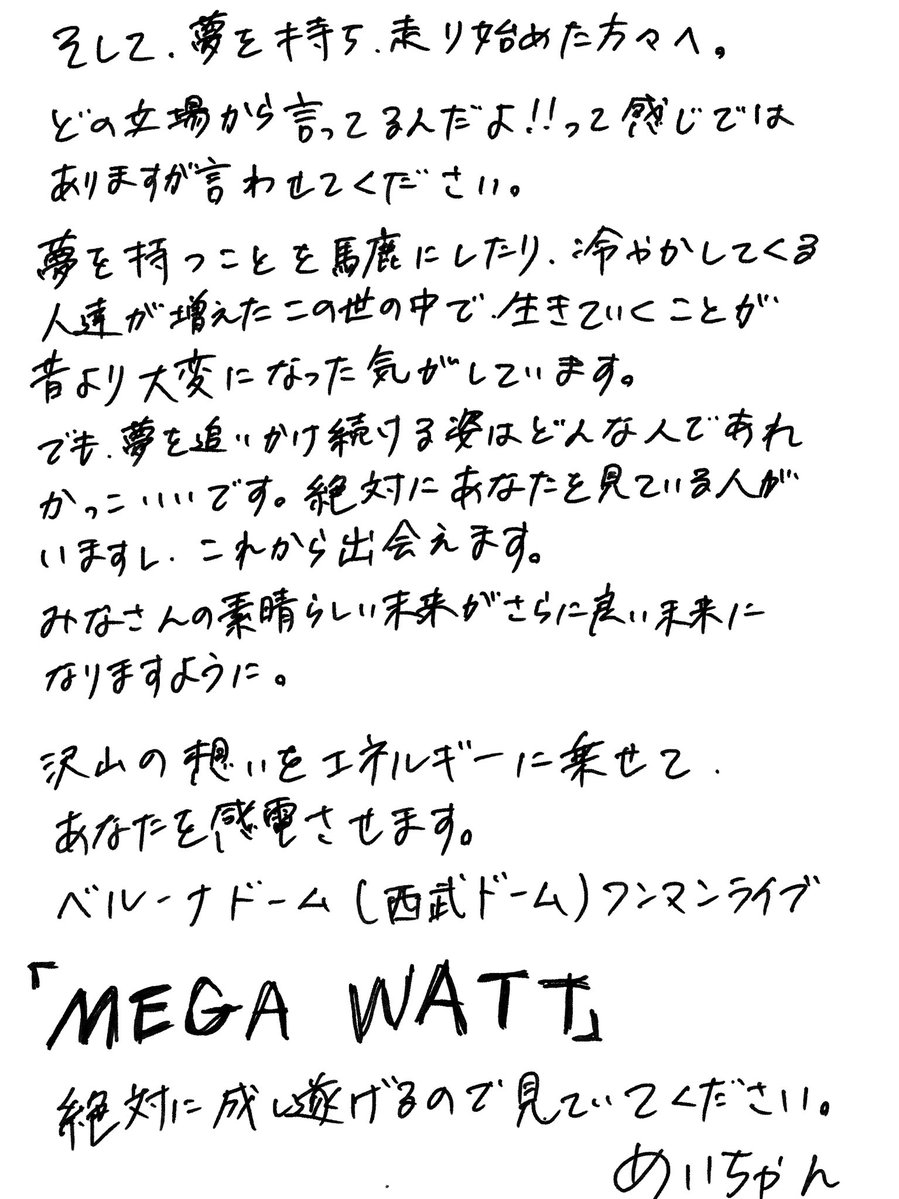 そして、夢を持ち、走り始めた方々へ。
どの立場から言ってるんだよ!!って感じでは
ありますが言わせてください。
夢を持つことを馬鹿にしたり、冷やかしてくる
人達が増えたこの世の中で、生きていくことが
昔より大変になった気がしています。
でも、夢を追いかけ続ける姿はどんな人であれ
かっこいいです。絶対にあなたを見ている人が
いますし、これから出会えます。
みなさんの素晴らしい未来がさらに良い未来に
なりますように。
沢山の想いをエネルギーに乗せて、
あなたを感電させます。
ベルーナドーム(西武ドーム)ワンマンライブ
「MEGA WATT」
絶対に成し遂げるので見ていてください。
めいちゃん